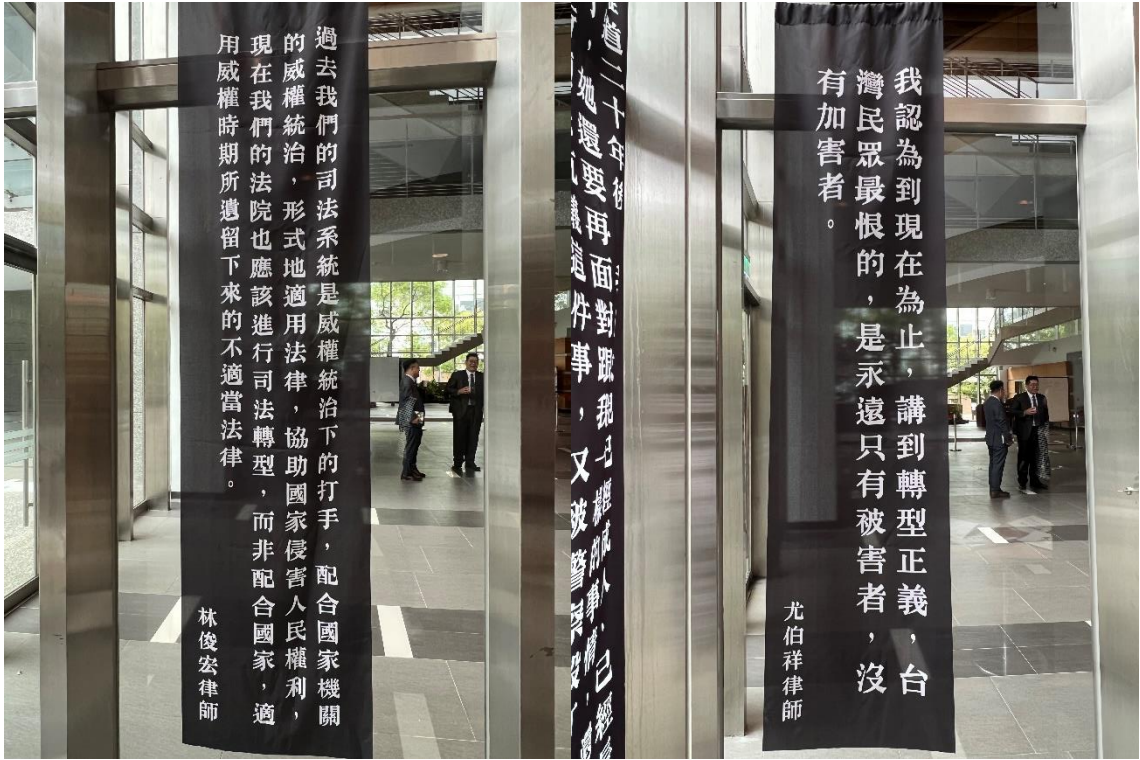 過去我們的司法系統是威權統治下的打手，配合國家機關
的威權統治，形式地適用法律，協助國家侵害人民權利，
現在我們的法院也應該進行司法轉型，而非配合國家，適
用威權時期所遺留下來的不適當法律。
林俊宏律師
道二十年後
，她還要再面對跟我一樣的事情，
義這件事，又被警察
已經成人、已經
我認為到現在為止，講到轉型正義，台
灣民眾最恨的，是永遠只有被害者，沒
有加害者。
尤伯祥律師